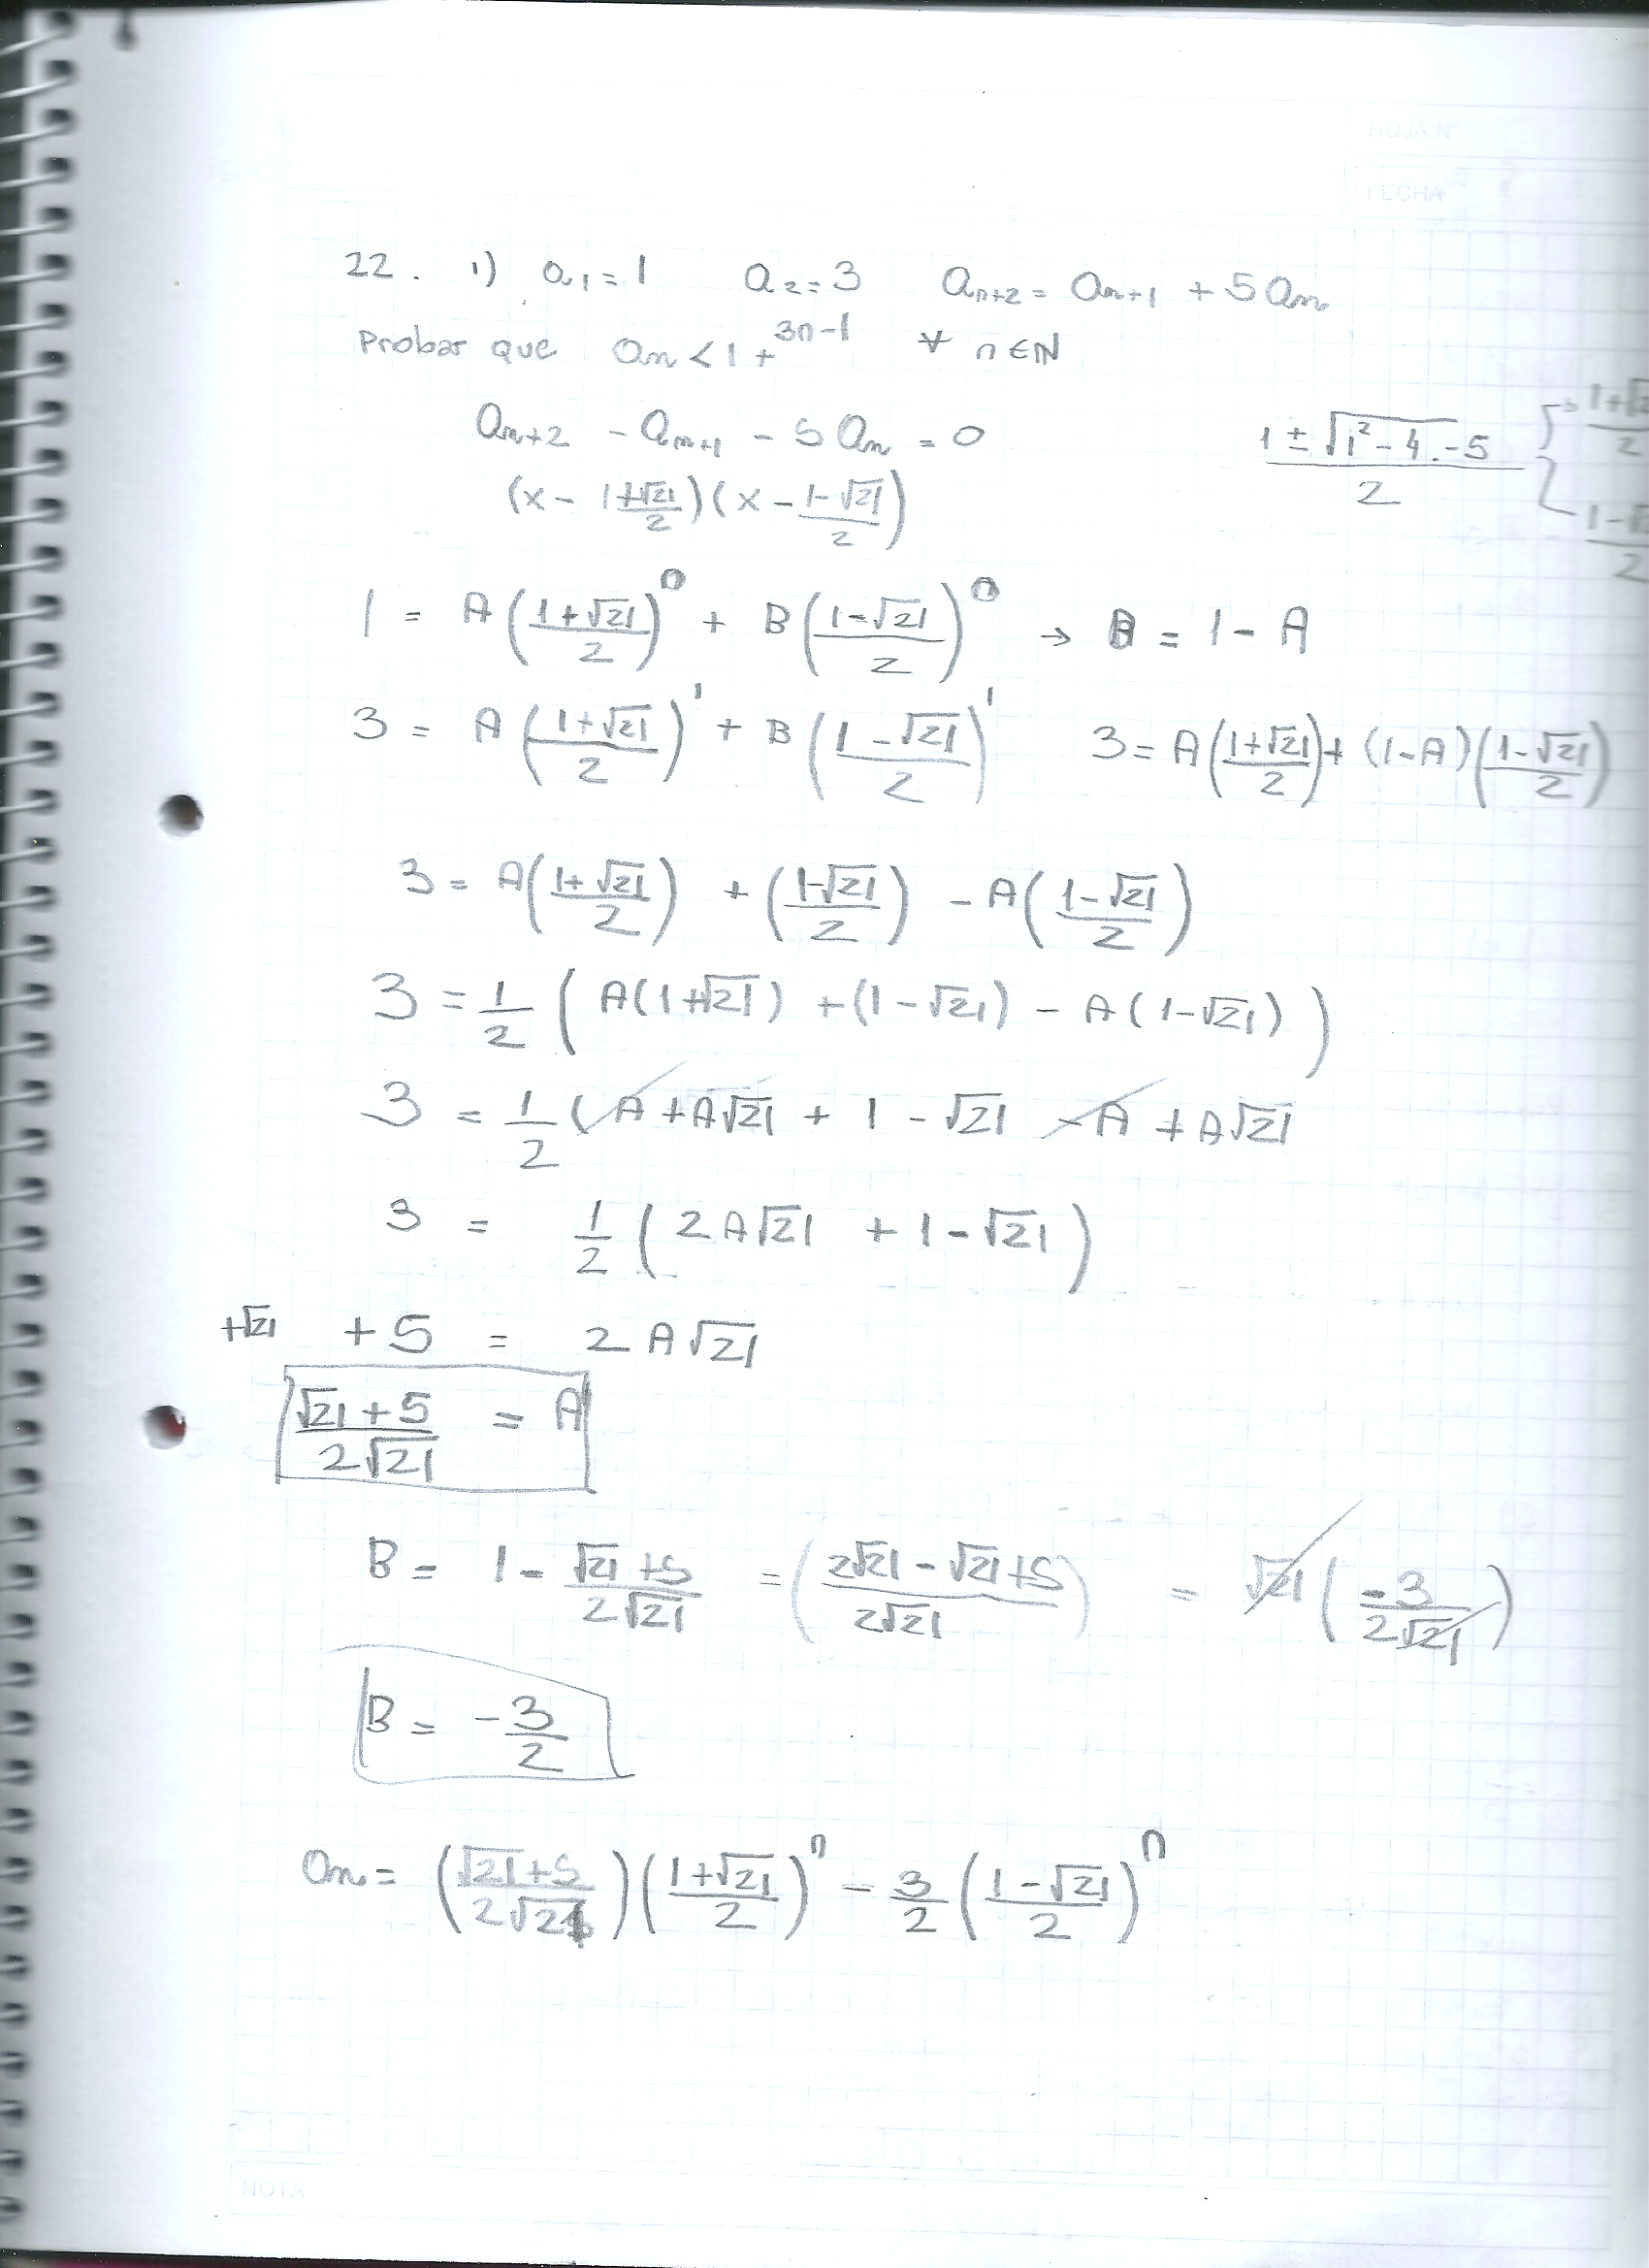 HOJA N°
FECHA
22. 1) a₁ = 1 a₂ = 3 aₙ₊₂ = aₙ₊₁ + 5aₙ
Probar que aₙ < 1 + ³ⁿ⁻¹ ∀ n ∈ ℕ
aₙ₊₂ - aₙ₊₁ - 5aₙ = 0
(1 ± √(1² - 4.-5))/2 → (1+√2 /2 (1-√2 /2
(x - (1+√21)/2)(x - (1-√21)/2)
1 = A((1+√21)/2)⁰ + B((1-√21)/2)⁰ → B = 1 - A
3 = A((1+√21)/2)¹ + B((1-√21)/2)¹ 3 = A((1+√21)/2) + (1-A)((1-√21)/2)
3 = A((1+√21)/2) + ((1-√21)/2) - A((1-√21)/2)
3 = 1/2 (A(1+√21) + (1-√21) - A(1-√21))
3 = 1/2 (A + A√21 + 1 - √21 - A + A√21
3 = 1/2 (2A√21 + 1 - √21)
+√21 + 5 = 2A√21
(√21 + 5)/(2√21) = A
B = 1 - (√21 + 5)/(2√21) = ((2√21 - √21 + 5)/(2√21)) = √21 (-3/(2√21))
B = -3/2
aₙ = ((√21 + 5)/(2√21))((1+√21)/2)ⁿ - 3/2 ((1-√21)/2)ⁿ
NOTA